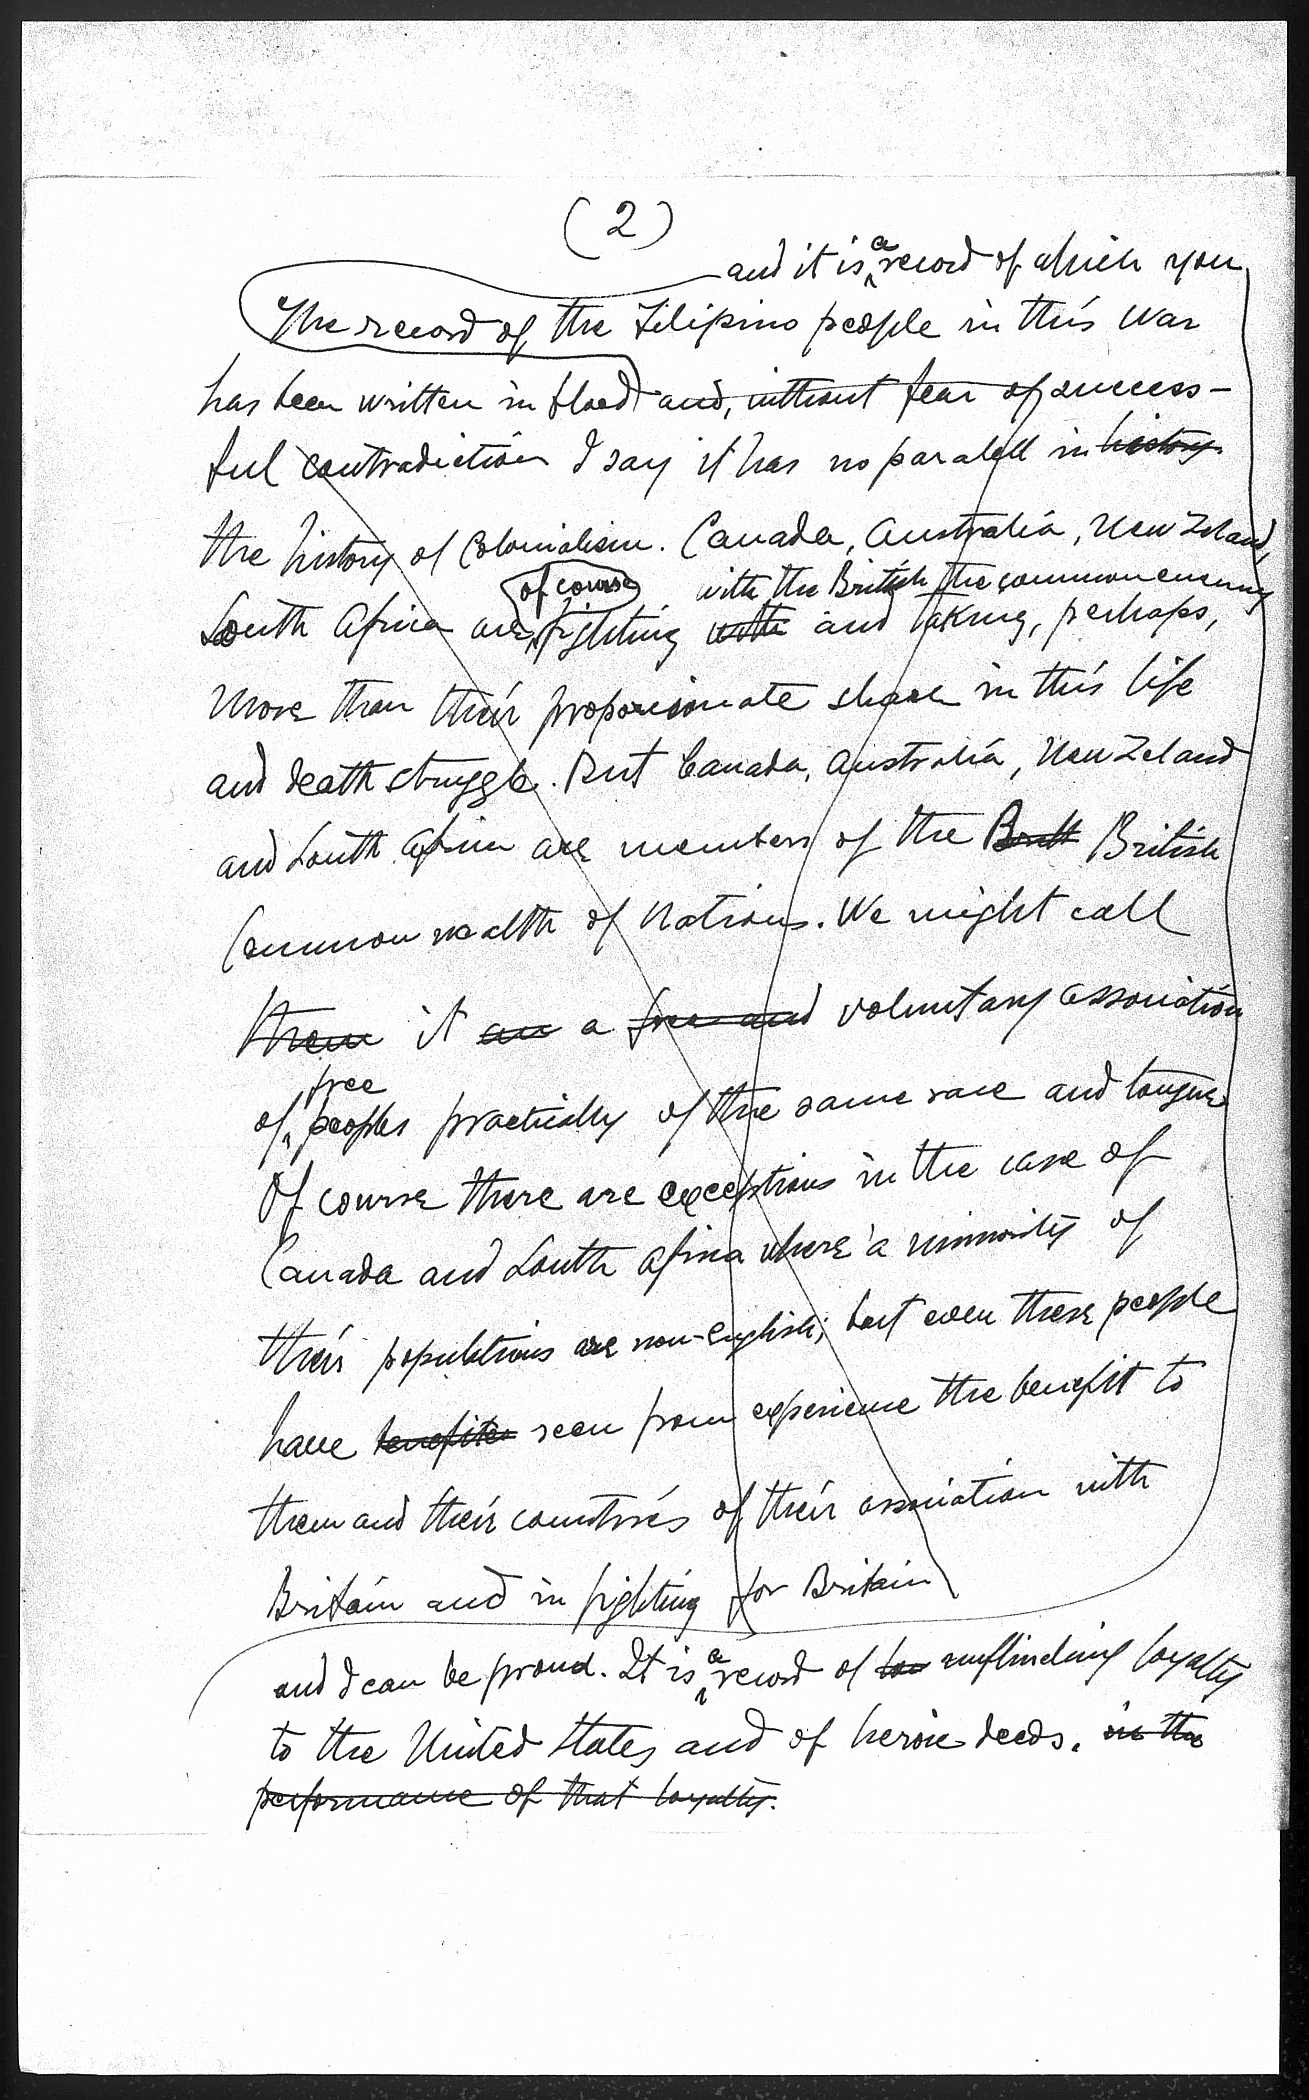 (2)
and it is a record of which you
The record of the Filipino people in this war
has been written in blood and, without fear of success-
ful contradiction I say it has no paralell in history
the history of Colonialism. Canada, Australia, New Zeland,
of course with the British the common enemy
South Africa are, fighting with and taking, perhaps,
more than their proporcionate share in this life
and death struggle. But Canada, Australia, New Zeland
and South Africa are members of the Britt British
Commonwealth of Nations. We might call
them it an a free and voluntary association
free
of peoples practically of the same race and tongue
Of course there are exceptions in the case of
Canada and South Africa where a minority of
their populations are non-english; but even these people
have benefited seen from experience the benefit to
them and their countries of their association with
Britain and in fighting for Britain
and I can be proud. It is a record of unflinching loyalty
to the United States and of heroic deeds. in the
performance of that loyalty.